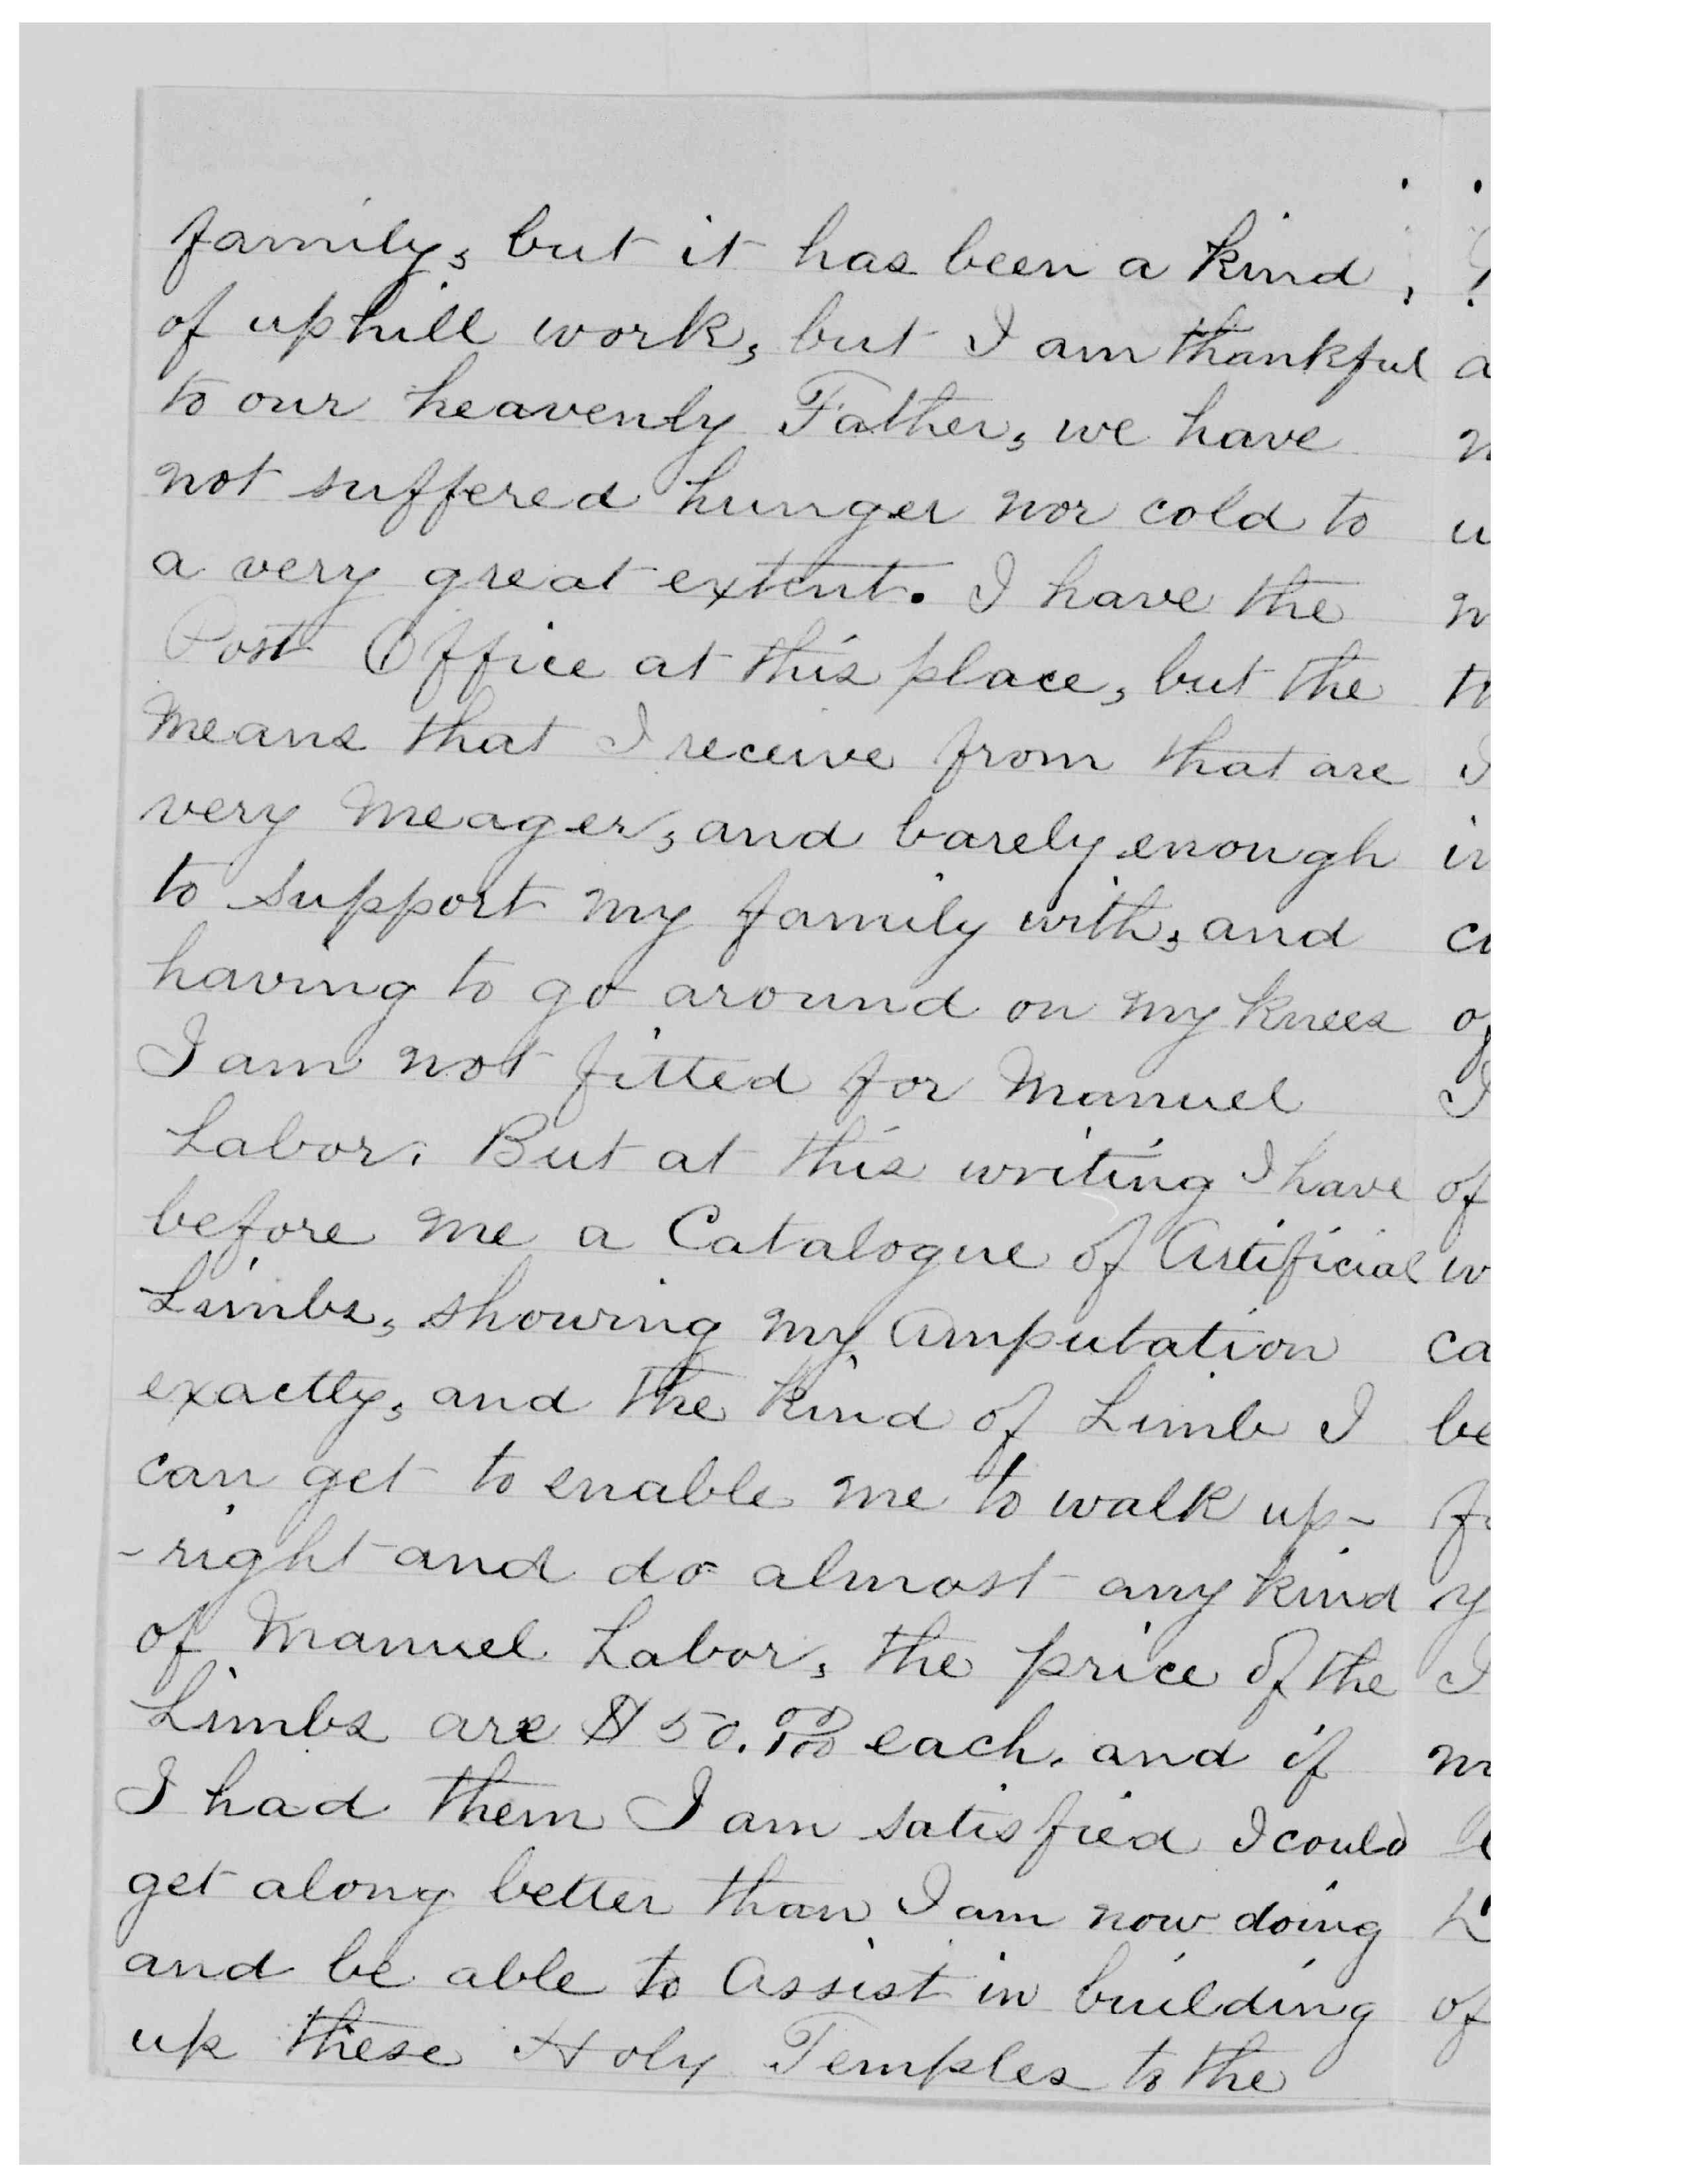 family, but it has been a kind
of uphill work, but I am thankful
to our heavenly Father, we have
not suffered hunger nor cold to
a very great extent. I have the
Post Office at this place, but the
means that I receive from that are
very meager, and barely enough
to support my family with, and
having to go around on my knees
I am not fitted for Manuel
Labor. But at this writing I have
before me a Catalogue of Artificial
Limbs, showing my Amputation
exactly, and the kind of Limb I
can get to enable me to walk up-
-right and do almost any kind
of Manuel Labor, the price of the
Limbs are $50.00/100 each. and if
I had them I am satisfied I could
get along better than I am now doing
and be able to Assist in building
up these Holy Temples to the